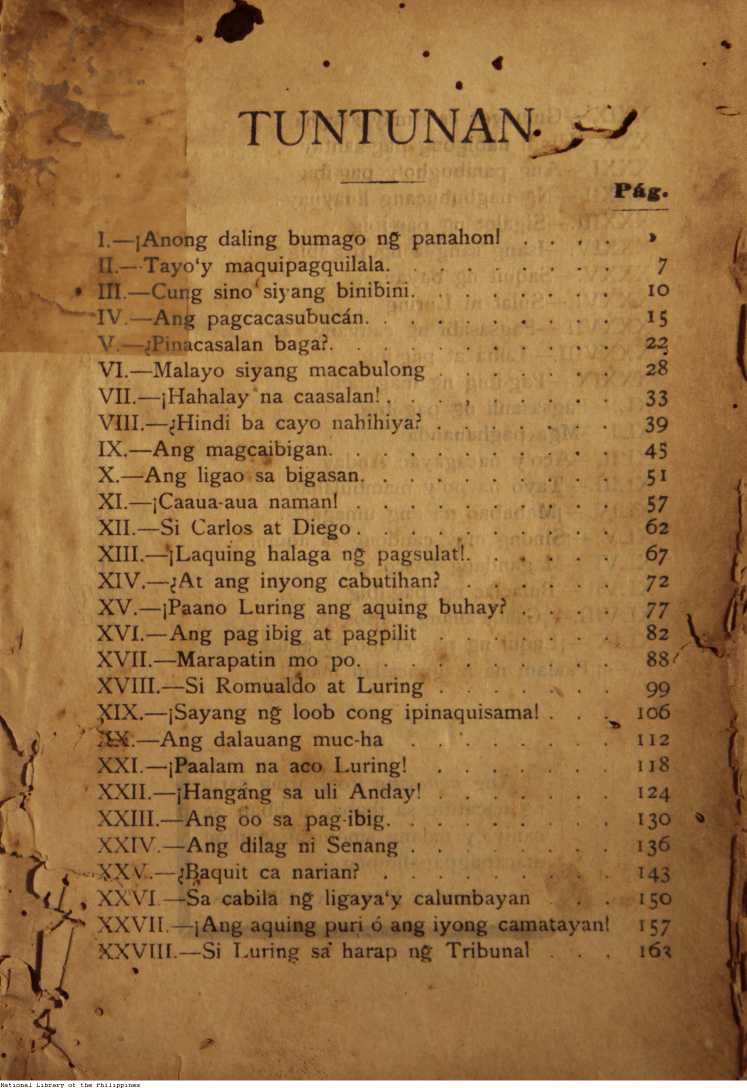 TUNTUNAN
Pág.
I.—¡Anong daling bumago ng̃ panahon! . . . .
II.—Tayo'y maquipagquilala. . . . . . . . . 7
III.—Cung sino siyang binibini. . . . . . . . 10
IV.—Ang pagcacasubucán. . . . . . . . . . 15
V.—¿Pinacasalan baga?. . . . . . . . . . . 22
VI.—Malayo siyang macabulong . . . . . . . 28
VII.—¡Hahalay na caasalan! . . . . . . . . . 33
VIII.—¿Hindi ba cayo nahihiya? . . . . . . . 39
IX.—Ang magcaibigan. . . . . . . . . . . 45
X.—Ang ligao sa bigasan. . . . . . . . . . 51
XI.—¡Caaua-aua naman! . . . . . . . . . . 57
XII.—Si Carlos at Diego . . . . . . . . . . 62
XIII.—¡Laquing halaga ng̃ pagsulat!. . . . . . 67
XIV.—¿At ang inyong cabutihan? . . . . . . 72
XV.—¡Paano Luring ang aquing buhay? . . . . 77
XVI.—Ang pag ibig at pagpilit . . . . . . . 82
XVII.—Marapatin mo po. . . . . . . . . . 88
XVIII.—Si Romualdo at Luring . . . . . . . 99
XIX.—¡Sayang ng̃ loob cong ipinaquisama! . . . 106
XX.—Ang dalauang muc-ha . . . . . . . . 112
XXI.—¡Paalam na aco Luring! . . . . . . . 118
XXII.—¡Hangáng sa uli Anday! . . . . . . . 124
XXIII.—Ang oo sa pag-ibig. . . . . . . . . 130
XXIV.—Ang dilag ni Senang . . . . . . . . 136
XXV.—¿Baquit ca narian? . . . . . . . . . 143
XXVI.—Sa cabila ng̃ ligaya'y calumbayan . . . 150
XXVII.—¡Ang aquing puri ó ang iyong camatayan! 157
XXVIII.—Si Luring sa harap ng̃ Tribunal . . . 163
National Library of the Philippines